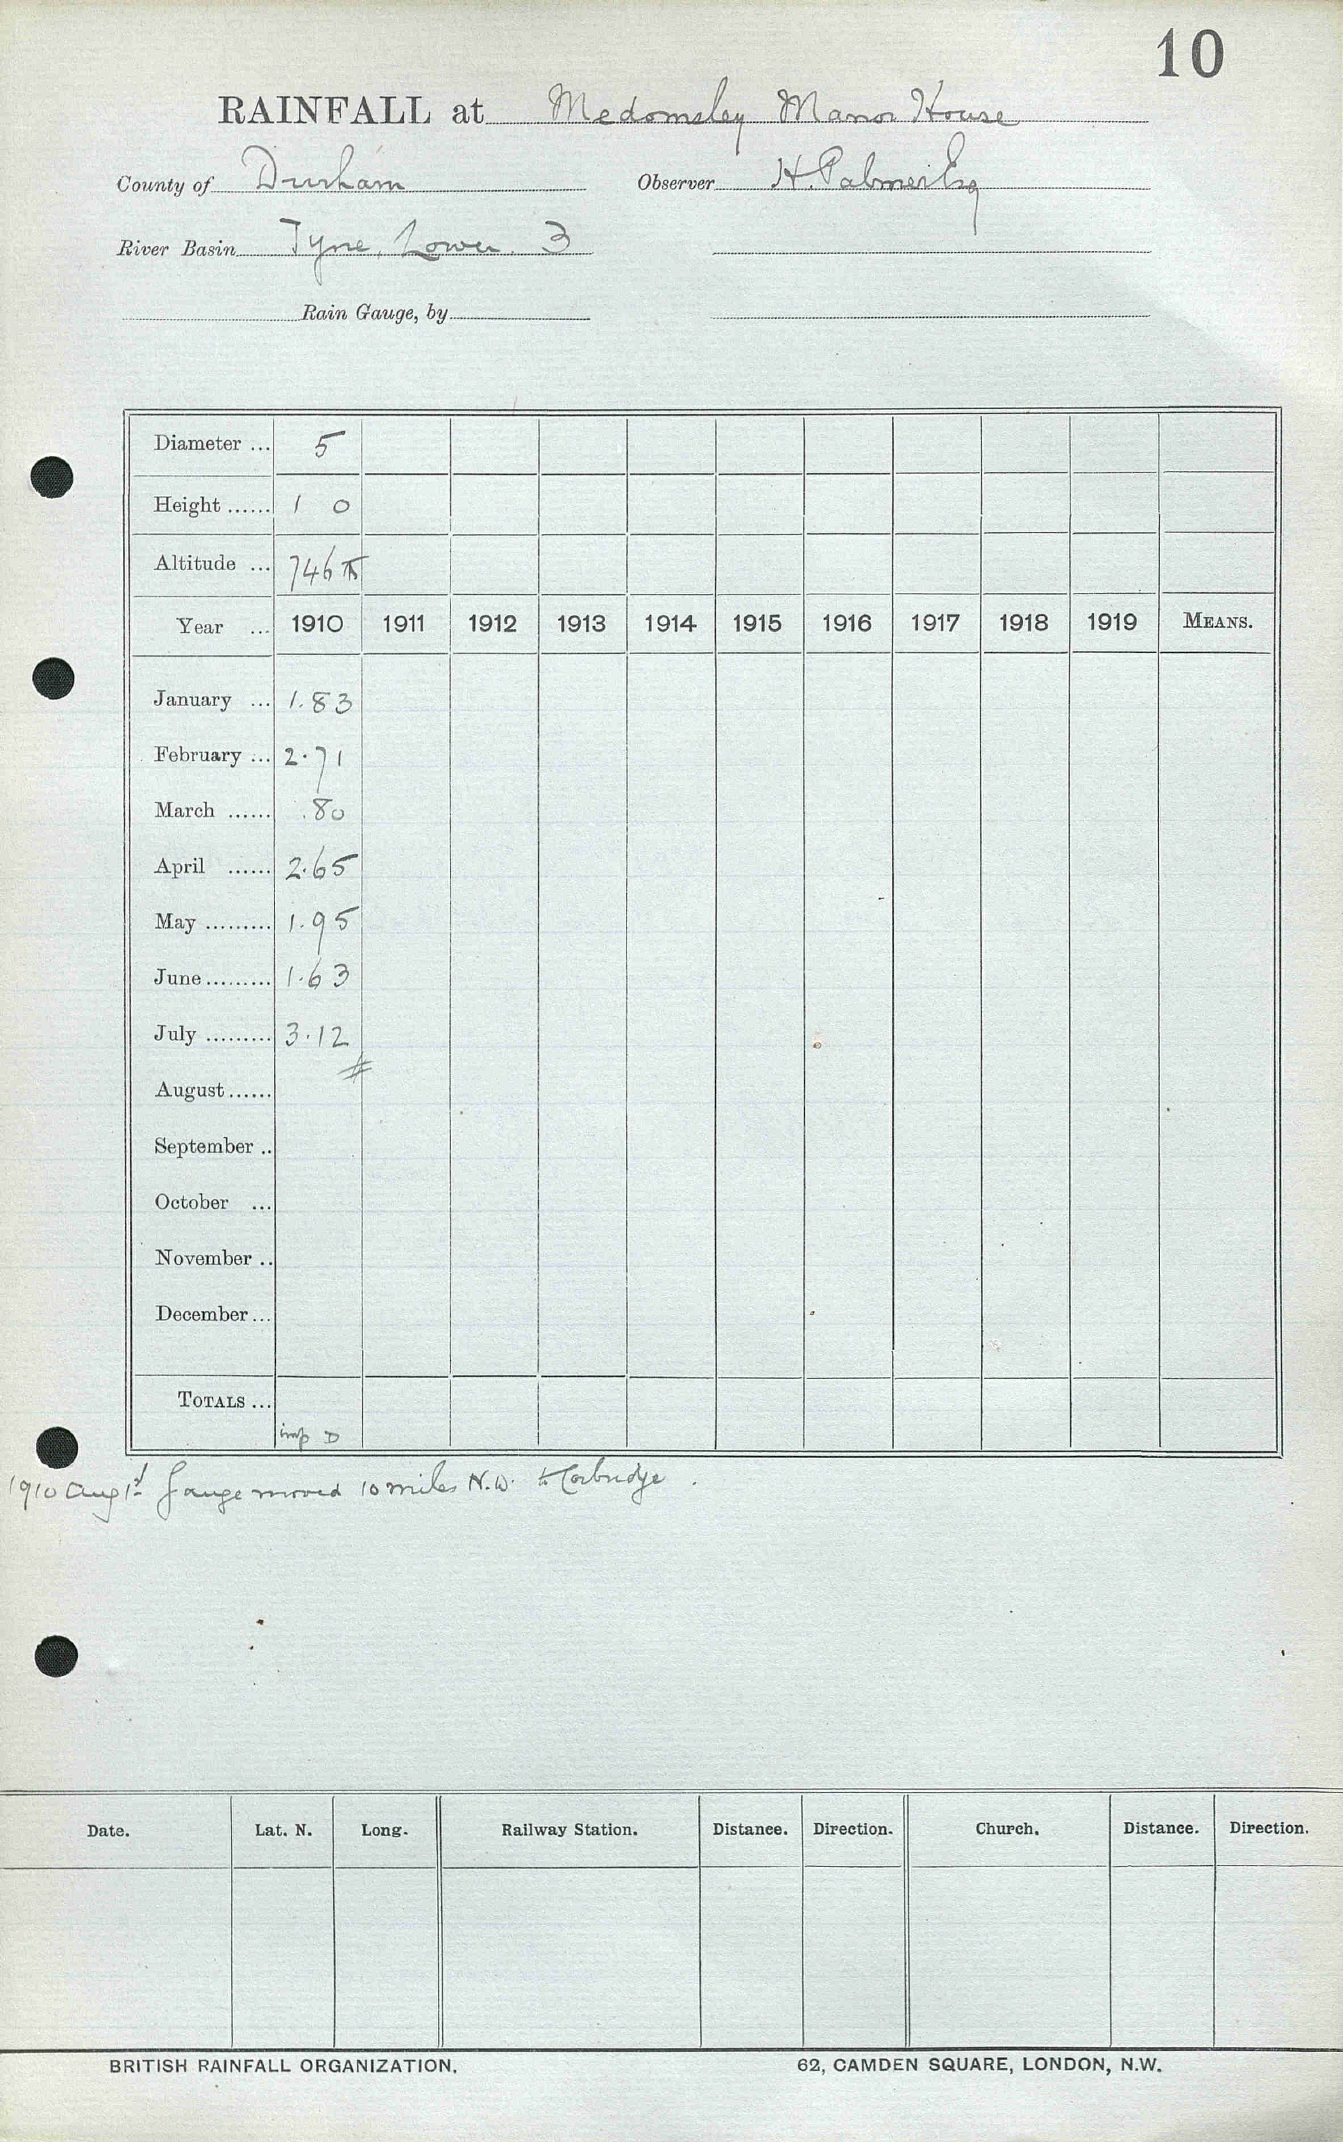 10
RAINFALL at Medomsley Manor House
County of Durham Observer H. Palmer Esq
River Basin Tyne, Lower. 3
Rain Gauge, by
Diameter ... 5
Height ...... 1 0
Altitude ... 746
Year ... 1910 1911 1912 1913 1914 1915 1916 1917 1918 1919 MEANS.
January ... 1.83
February ... 2.71
March ...... .80
April ...... 2.65
May ......... 1.95
June ......... 1.63
July ......... 3.12
#
August ......
September ..
October ...
November ..
December ...
TOTALS ...
imp D
1910 Aug 1st Gauge moved 10 miles N.W. to Corbridge.
Date. Lat. N. Long. Railway Station. Distance. Direction. Church. Distance. Direction.
BRITISH RAINFALL ORGANIZATION. 62, CAMDEN SQUARE, LONDON, N.W.